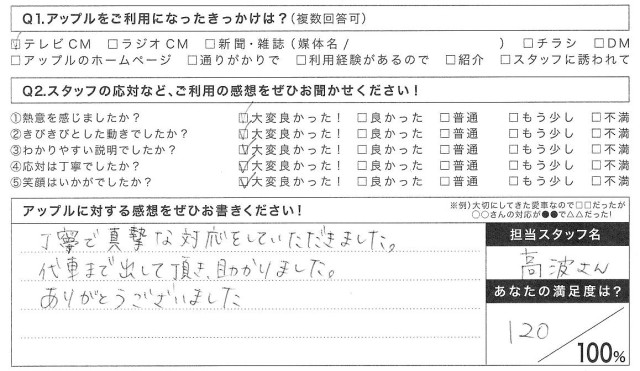 Q1.アップルをご利用になったきっかけは？（複数回答可）
☑テレビCM □ラジオCM □新聞・雑誌（媒体名/ ）□チラシ □DM
□アップルのホームページ □通りがかりで □利用経験があるので □紹介 □スタッフに誘われて
Q2.スタッフの応対など、ご利用の感想をぜひお聞かせください！
①熱意を感じましたか？ ☑大変良かった！ □良かった □普通 □もう少し □不満
②きびきびとした動きでしたか？ ☑大変良かった！ □良かった □普通 □もう少し □不満
③わかりやすい説明でしたか？ ☑大変良かった！ □良かった □普通 □もう少し □不満
④応対は丁寧でしたか？ ☑大変良かった！ □良かった □普通 □もう少し □不満
⑤笑顔はいかがでしたか？ ☑大変良かった！ □良かった □普通 □もう少し □不満
アップルに対する感想をぜひお書きください！
※例）大切にしてきた愛車なので□□だったが
○○さんの対応が●●で△△だった！
丁寧で真摯な対応をしていただきました。
代車まで出して頂き、助かりました。
ありがとうございました
担当スタッフ名
高波さん
あなたの満足度は？
120
100%